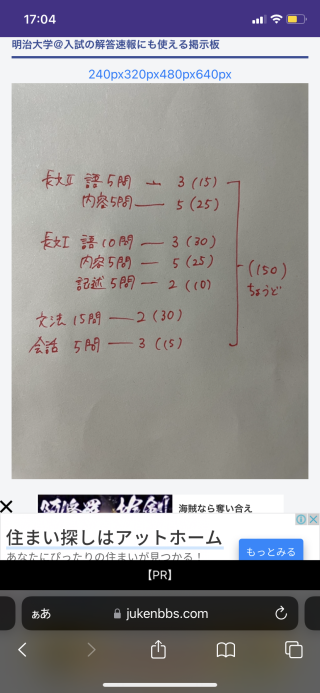 17:04
明治大学@入試の解答速報にも使える掲示板
240px320px480px640px
長文II 語5問 — 3 (15)
内容5問 — 5 (25)
長文I 語10問 — 3 (30)
内容5問 — 5 (25)
記述5問 — 2 (10)
(150)
ちょうど
文法 15問 — 2 (30)
会話 5問 — 3 (15)
海賊なら奪い合え
住まい探しはアットホーム
あなたにぴったりの住まいが見つかる!
もっとみる
【PR】
ぁあ
jukenbbs.com